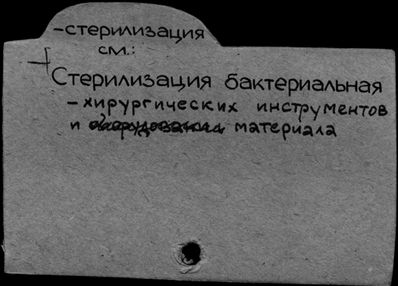 -стерилизация
см.:
+ Стерилизация бактериальная
-хирургических инструментов
и оборудования материала